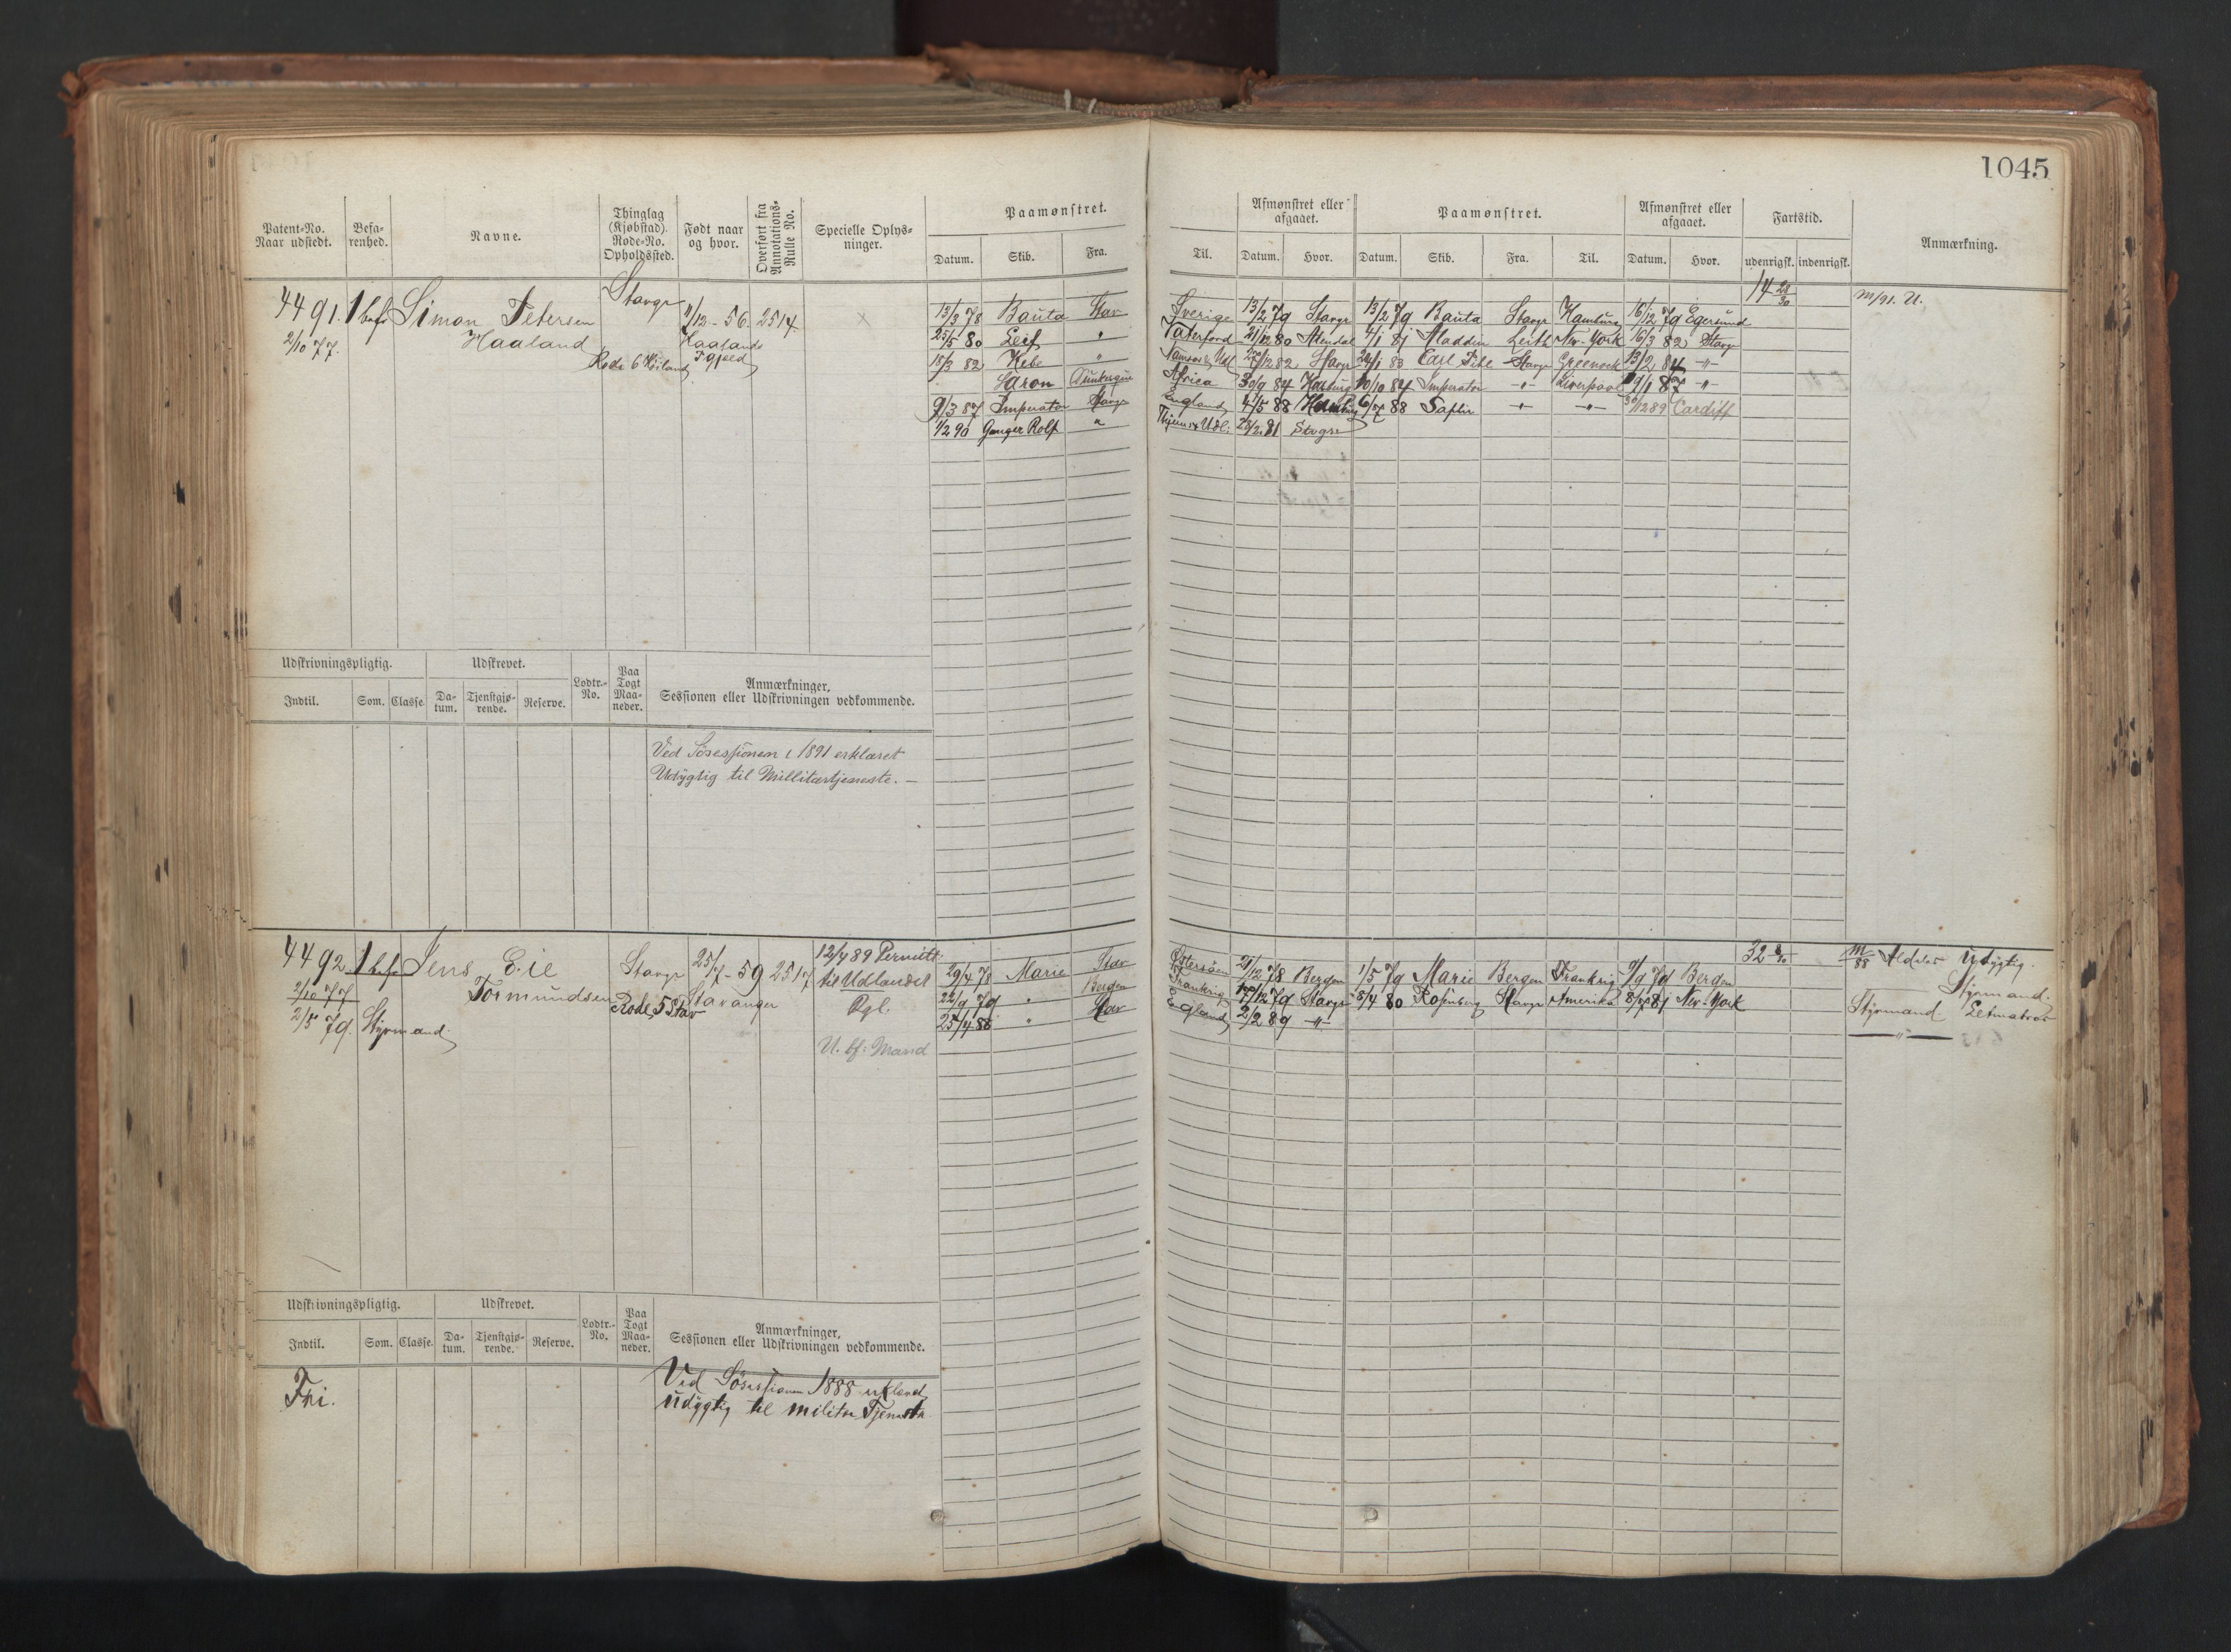 1045
Patent-No. Naar udstedt.
Befarenhed.
Navne.
Thinglag (Kjøbstad). Rode-No. Opholdssted.
Født naar og hvor.
Overført fra Annotations-Rulle No.
Specielle Oplysninger.
Paamønstret.
Datum. Skib. Fra.
Til.
Afmønstret eller afgaaet.
Datum. Hvor.
Paamønstret.
Datum. Skib. Fra. Til.
Afmønstret eller afgaaet.
Datum. Hvor.
Fartstid.
udenrigsk. indenrigsk.
Anmærkning.
4491. 1 bef Simon Petersen Stavgr 11/12 - 56. 2514.
2/10 77. Haaland Haaland
Rode 6
14 28/30 m/91. U.
13/3 78 Bauta Stav Sverige 13/2 79 Stavgr 13/2 79 Bauta Stavgr Hamburg 16/12 79 Egersund
25/5 80 Leif " 21/12 80 Arendal 4/1 81 Aladdin Leith New-York 16/3 82 Stavgr
15/3 82 Hebe " 82 Stavgr 24/1 83 Carl Stavgr Greenock 13/2 84 -"-
Saron Africa 30/9 84 10/10 84 Imperator -"- Liverpool 19/1 87 -"-
9/3 87 Imperator Stavgr England 4/5 88 88 Saflir -"- -"- Cardiff
1/2 90 Ganger Rolf " Udl: Stvgr
Udskrivningspligtig. Udskrevet. Lodtr.-No. Paa Togt Maaneder. Anmærkninger, Sessionen eller Udskrivningen vedkommende.
Indtil. Som. Classe. Datum. Tjenstgjørende. Reserve.
Ved Sösessionen i 1891 erklæret
Udygtig til Millitærtjeneste. —
4492 1 bef Jens Eie Stavgr 25/7 - 59 2517 12/4 89 Permitt.
2/10 77 Tormundsen Rode 5 Stav Stavanger til Udlandet
2/5 79. Styrmand Rgl.
U. bf: Mand
32
29/4 78 Marie Stav Østersøen 21/12 78 Bergen 1/5 79 Marie Bergen Frankrig 9/9 79 Bergen
22/9 79 " Bergen Frankrig 12 79 Stavgr 8/4 80 Stavgr Amerika 81 New-York
25/4 88 " Stav England 2/2 89 -"-
m/88 Udygtig
Styrmand.
Styrmand Letmatros
—"—
Udskrivningspligtig. Udskrevet. Lodtr.-No. Paa Togt Maaneder. Anmærkninger, Sessionen eller Udskrivningen vedkommende.
Indtil. Som. Classe. Datum. Tjenstgjørende. Reserve.
Fri.
Ved Sösessionen 1888 erklæret
Udygtig til militær Tjeneste